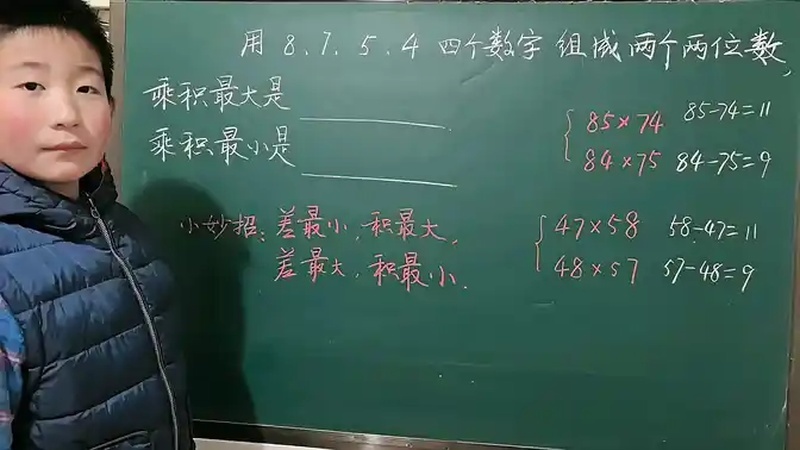 用 8.7.5.4 四个数字 组成两个两位数,
乘积最大是
乘积最小是
85×74 85-74=11
84×75 84-75=9
小妙招:差最小,积最大,
差最大,积最小.
47×58 58-47=11
48×57 57-48=9